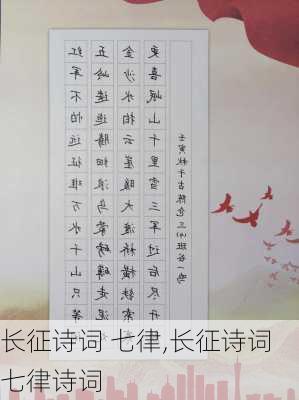 红军不怕远征难万水千山只等
五岭逶迤腾细浪乌蒙磅礴走泥
金沙水拍云崖暖大渡桥横铁索
更喜岷山千里雪三军过后尽开
壬寅秋于古陈仓三(4)班谷一鸣
长征诗词 七律,长征诗词
七律诗词